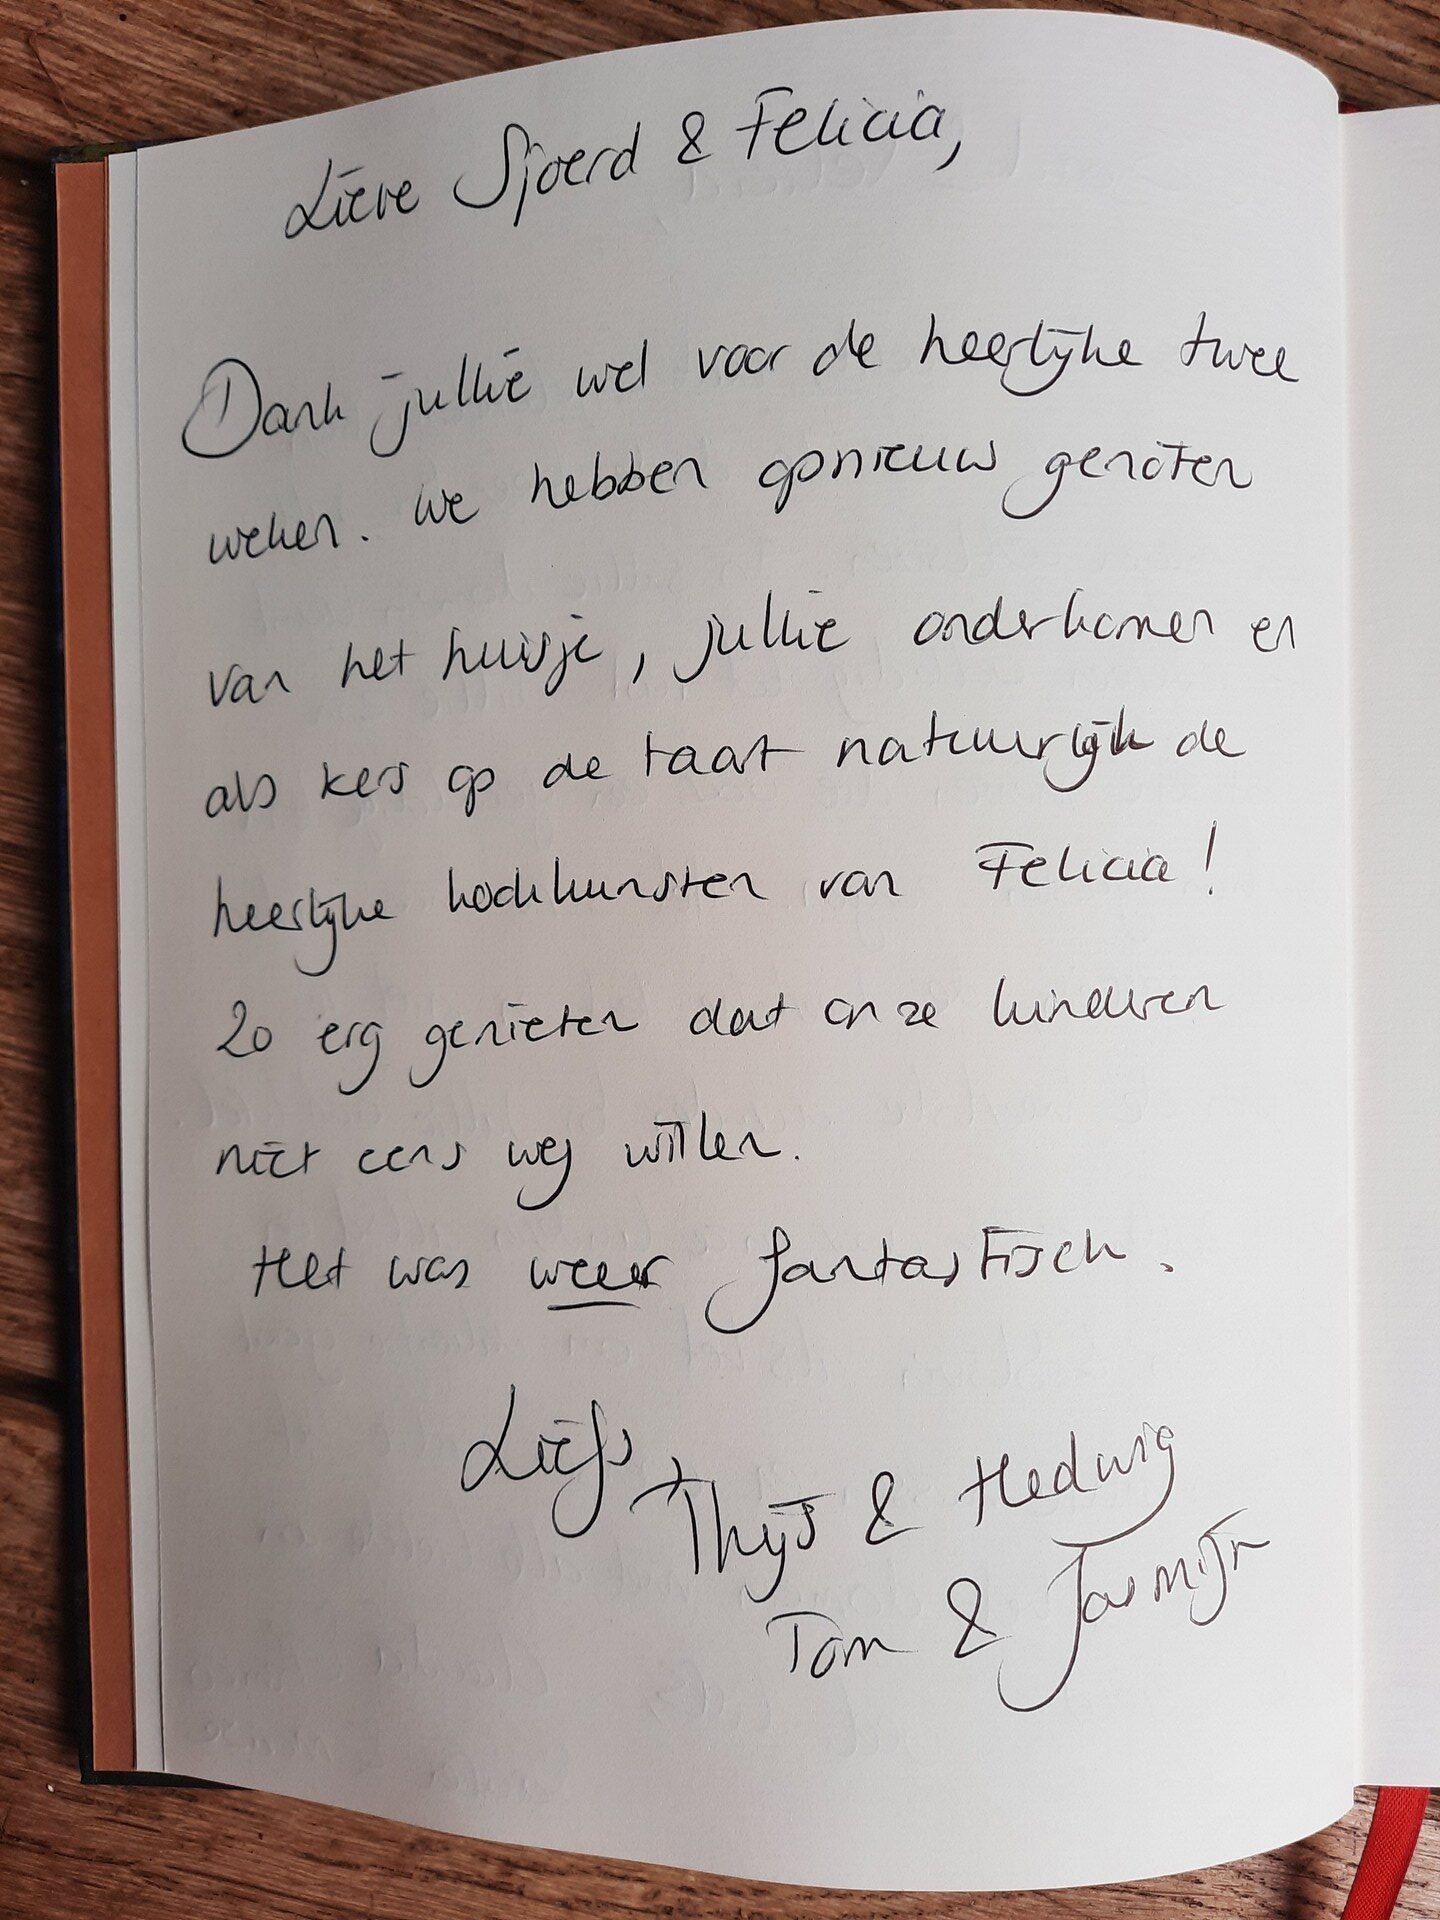 Lieve Sjoerd & Felicia,
Dank jullie wel voor de heerlijke twee
weken. We hebben opnieuw genoten
van het huisje, jullie onderkomen en
als kers op de taart natuurlijk de
heerlijke kookkunsten van Felicia!
Zo erg genieten dat onze kinderen
niet eens weg willen.
Het was weer fantastisch.
Liefs,
Thijs & Hedwig
Tom & Jasmijn